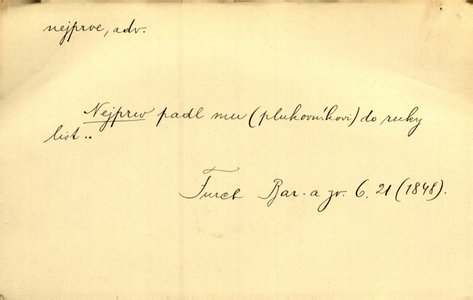 nejprve, adv.
Nejprv padl mu (plukovníkovi) do ruky
list..
Furch Bar. a zv. 6. 21 (1848).